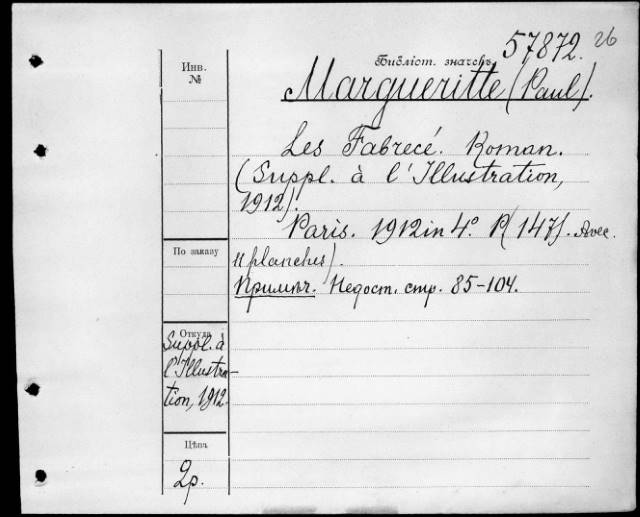 57872. 26
Инв.
№
Библіот. значекъ
Margueritte (Paul).
Les Fabrecé. Roman.
(Suppl. à l'Illustration,
1912).
Paris. 1912 in 4°. P(147). Avec.
11 planches).
Примѣч. Недост. стр. 85-104.
По заказу
Откуда
Suppl. à
l'Illustra-
tion, 1912.
Цѣна
2р.